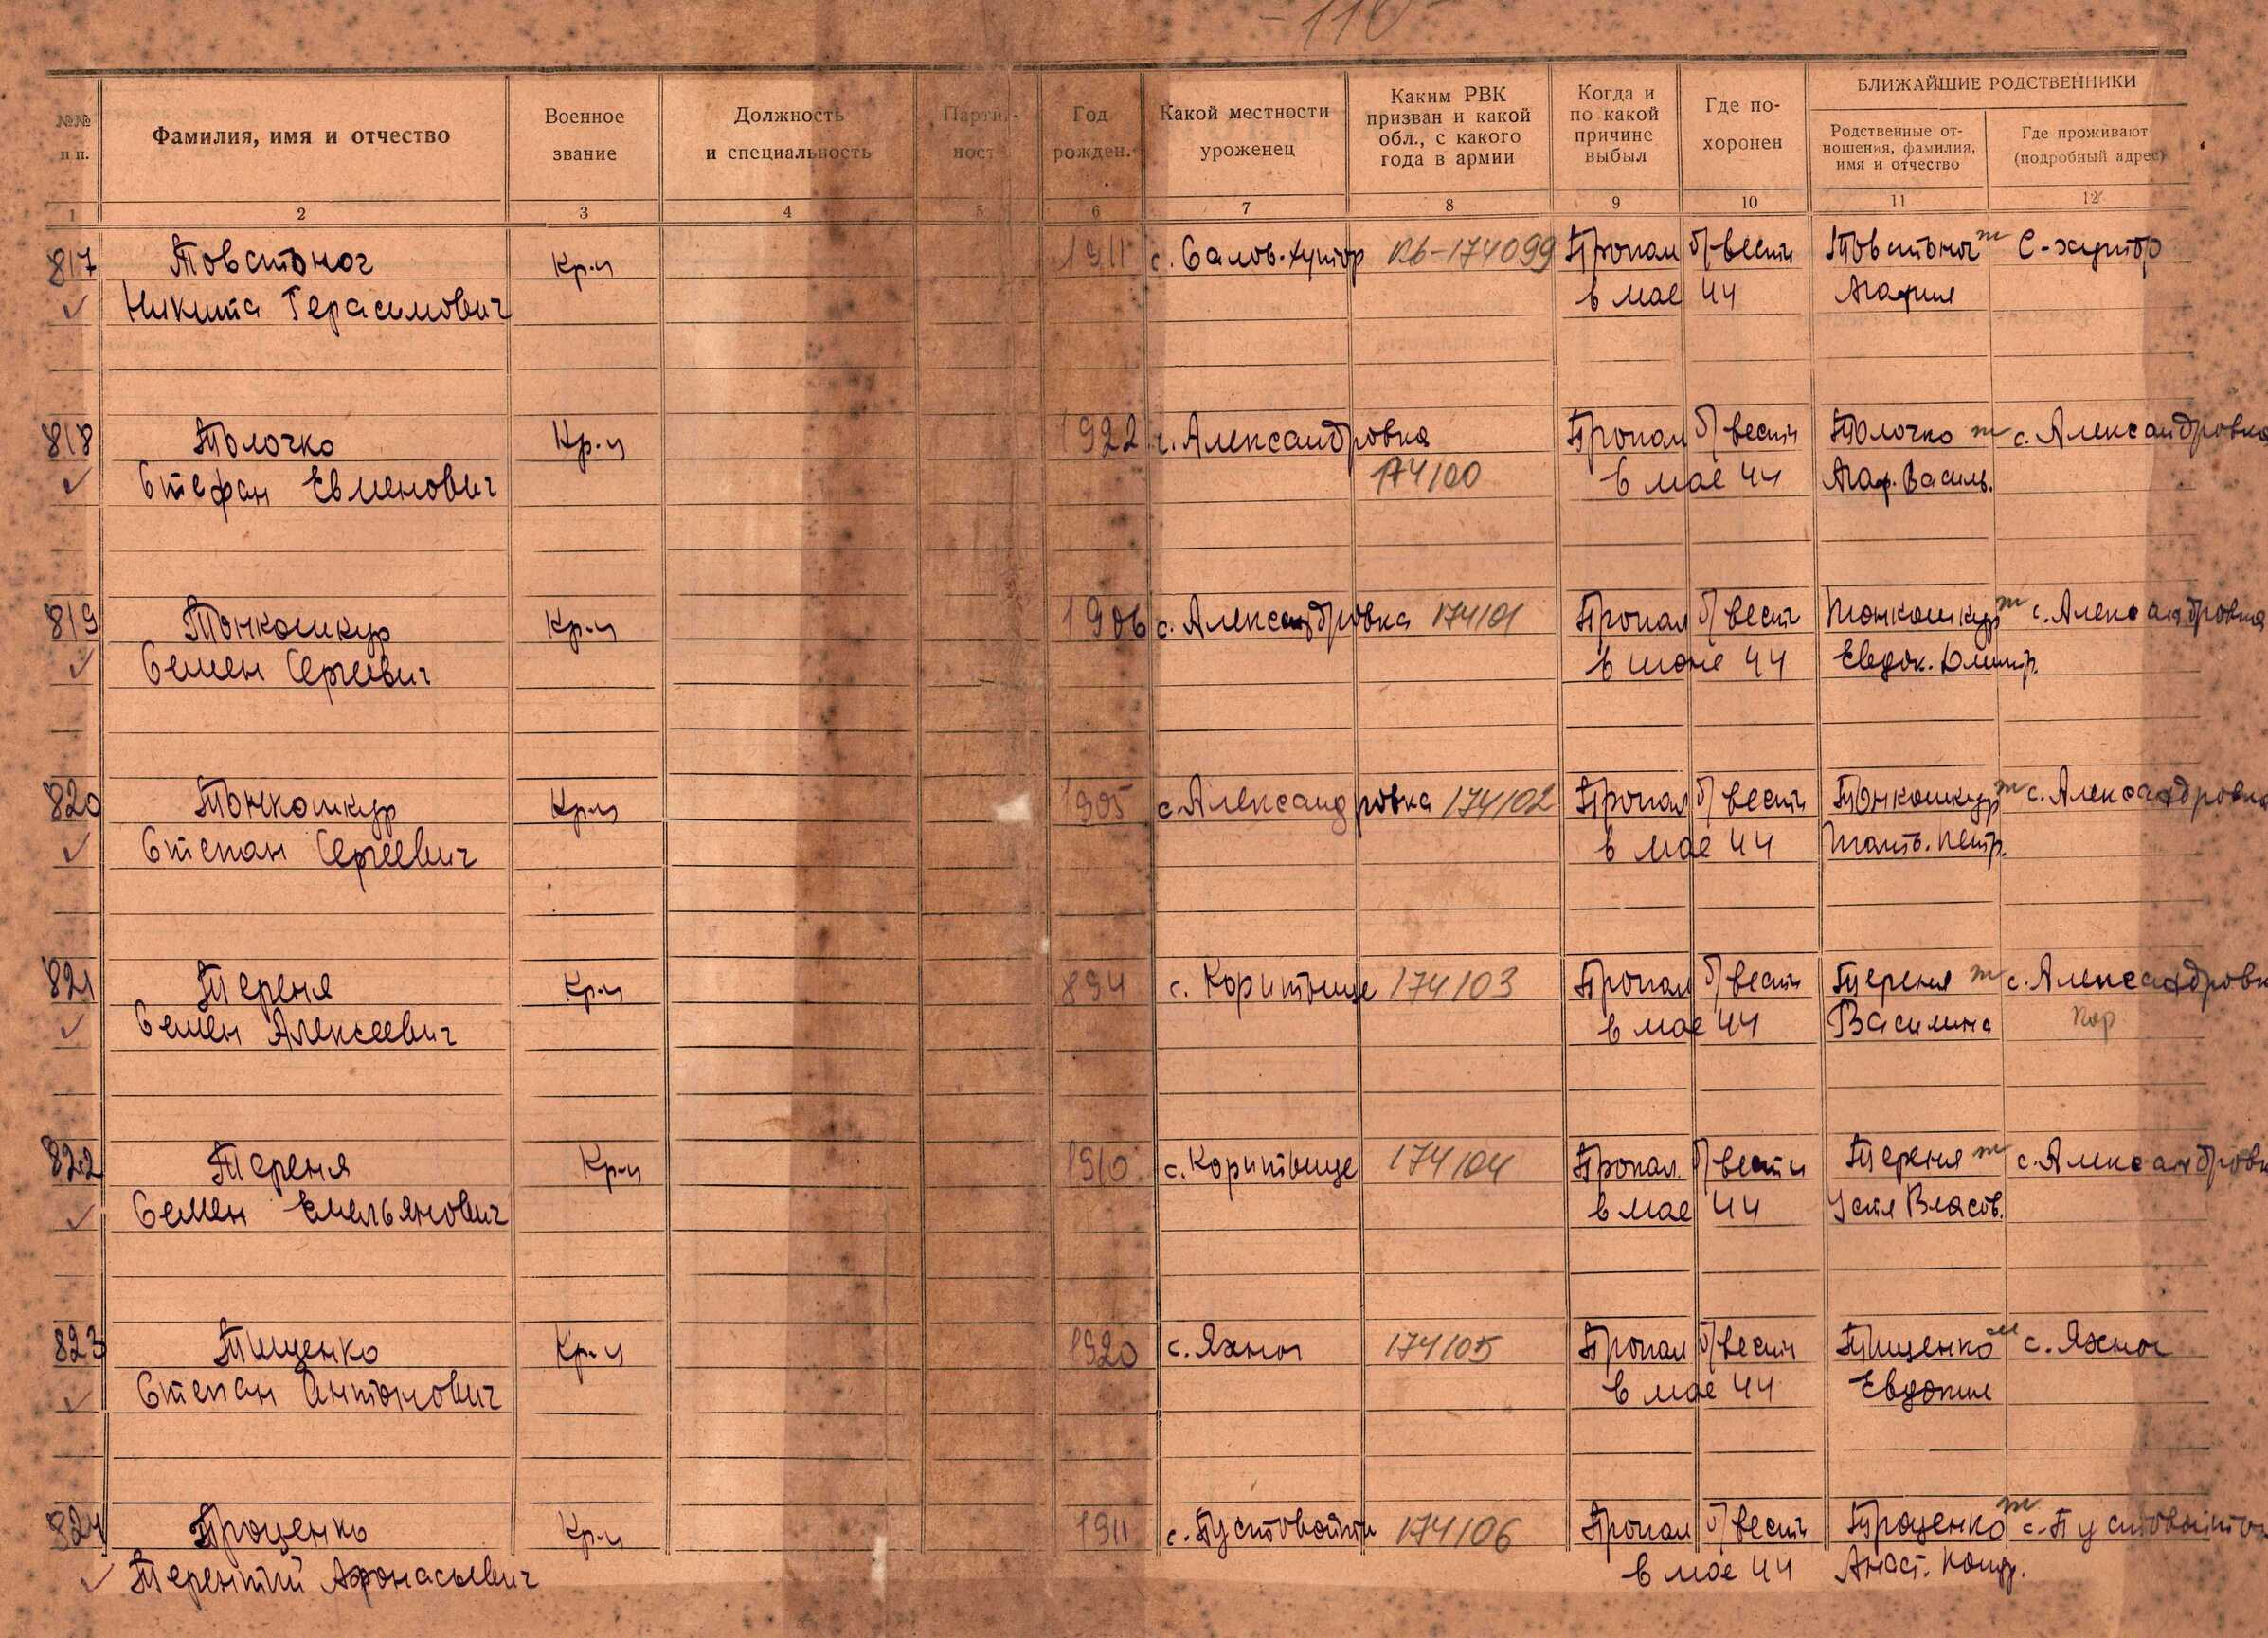 - 110 -
№№ п п.
Фамилия, имя и отчество
Военное звание
Должность и специальность
Парти- ност
Год рожден.
Какой местности уроженец
Каким РВК призван и какой обл., с какого года в армии
Когда и по какой причине выбыл
Где по- хоронен
БЛИЖАЙШИЕ РОДСТВЕННИКИ
Родственные от- ношения, фамилия, имя и отчество
Где проживают (подробный адрес)
1 2 3 4 5 6 7 8 9 10 11 12
817 Товстоног Кр-ц 1911 с. Салов-хутор 174099 Пропал б/вести Товстоног ж С-хутор
Никита Герасимович в мае 44 Агафия
818 Толочко Кр-ц 1922 с. Александровка Пропал б/вести Толочко ж с. Александровка
Стефан Евменович 174100 в мае 44 Агаф. Василь.
819 Тонкошкур Кр-ц 1906 с. Александровка 174101 Пропал б/вести Тонкошкур ж с. Александровка
Семен Сергеевич в июне 44 Евдок. Дмитр.
820 Тонкошкур Кр-ц 1905 с. Александровка 174102 Пропал б/вести Тонкошкур ж с. Александровка
Степан Сергеевич в мае 44 Петр.
821 Тереня Кр-ц 894 с. Коритьище 174103 Пропал б/вести Тереня ж с. Александровк
Семен Алексеевич в мае 44 Василина Кор
822 Тереня Кр-ц 1910 с. Коритьище 174104 Пропал б/вести Тереня ж с. Александровк
Семен Емельянович в мае 44 Устя Власов.
823 Тищенко Кр-ц 1920 с. Яхног 174105 Пропал б/вести Тищенко м с. Яхног
Степан Антонович в мае 44 Евдокия
824 Проценко Кр-ц 1911 с. Пустовойти 174106 Пропал б/вести Проценко ж с. Пустовойтов
Терентий Афонасьевич в мае 44 Анаст. Конд.